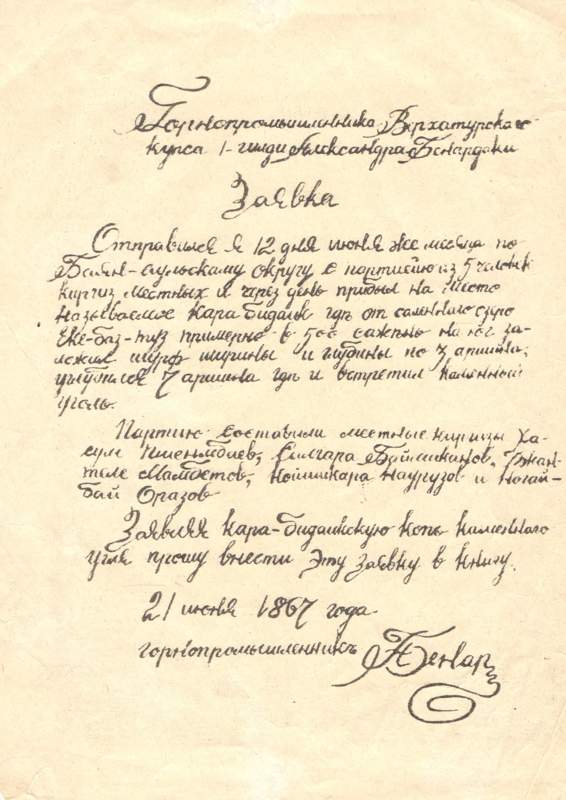 Горнопромышленника Верхатурского
купса 1-гилди Александра Бенардаки
Заявка
Отправился я 12 дня июня же месяца по
Баян-аульскому округу с партиею из 5 человек
киргиз местных и через день прибыл на место
называемое Кара-бидаик где от соленного озеро
Еке-баз-туз примерно в 500 сажень на юг за-
ложил шурф ширины и глубины по 3 аршина;
углубился 7 аршина где и встретил каменный
уголь.
Партию составили местные киргизы Ха-
сул Пшенмбиев, Байшиканов, Джан-
теле Мамбетов, Койшикара Наурузов и Ногай-
бай Оразов
Заявляя Кара-бидаикскую копь каменного
угля прошу внести эту заявку в книгу.
21 июня 1867 года
горнопромышленникъ АБенар